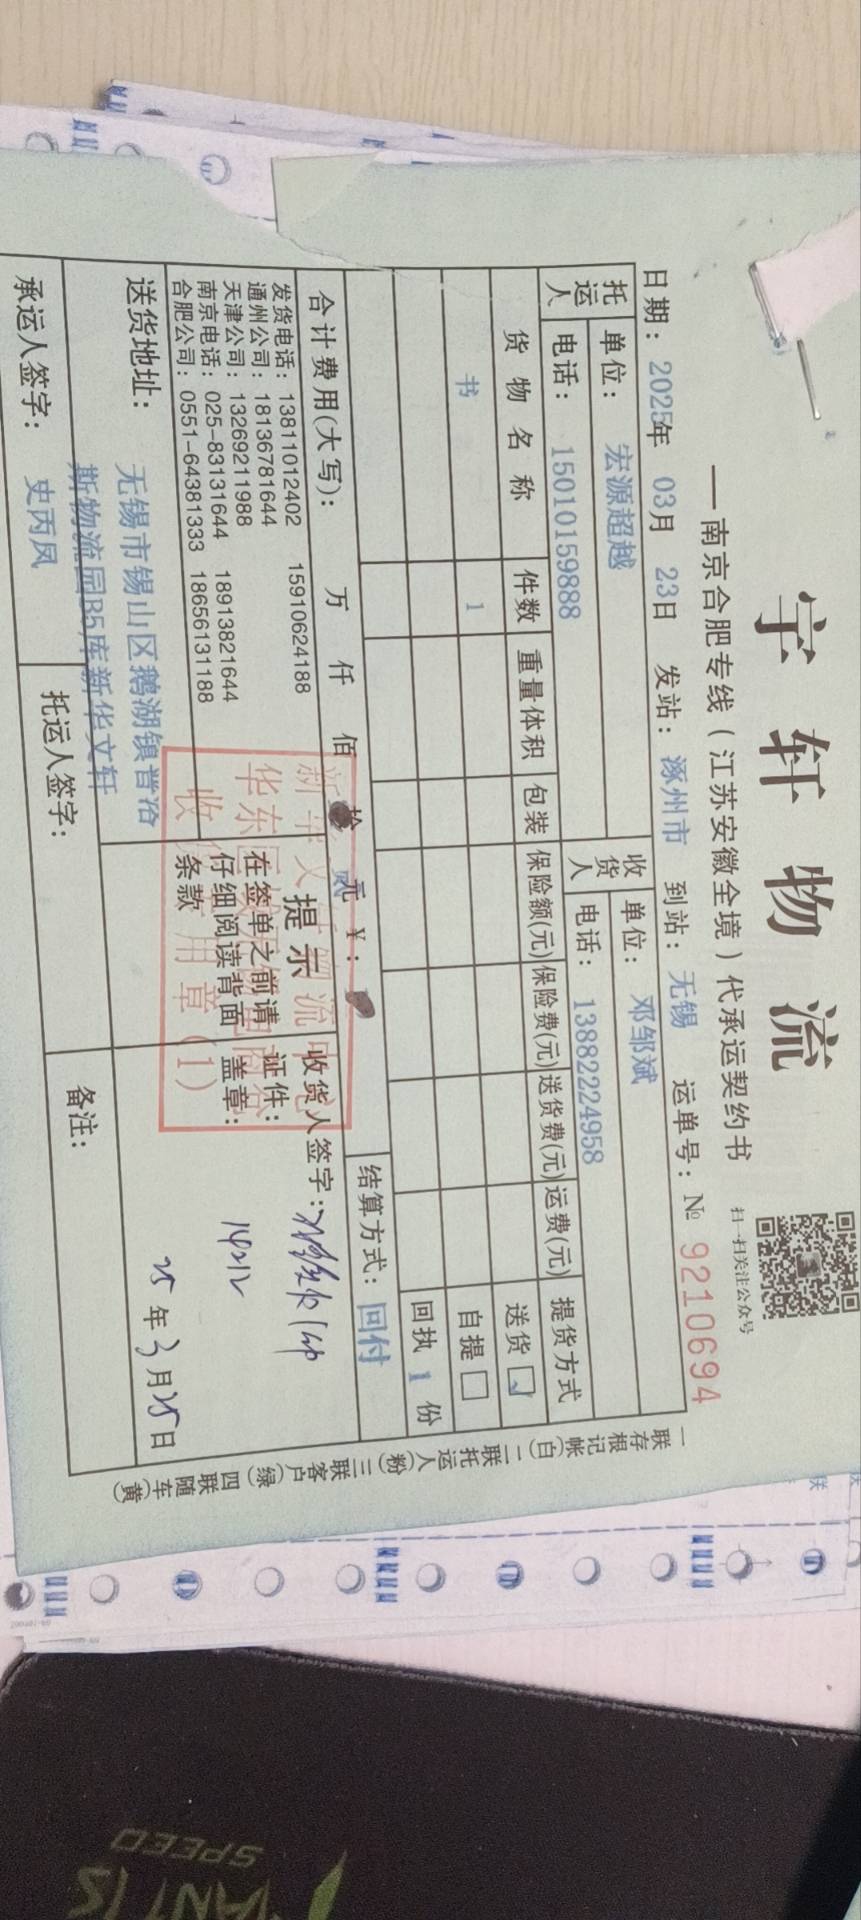 字轩物流
扫一扫关注公众号
—南京合肥专线（江苏安徽全境）代承运契约书
日期：2025年 03月 23日 发站：涿州市 到站：无锡 运单号：№ 9210694
托运人 单位：宏源超越 收货人 单位：邓邹斌
电话：15010159888 电话：13882224958
货物名称 件数 重量体积 包装 保险额(元) 保险费(元) 送货费(元) 运费(元) 提货方式
书 1
送货
自提
回执 1 份
合计费用(大写)： 万 仟 佰 拾 元 ¥： 结算方式：回付
发货电话：13811012402 15910624188
通州公司：18136781644
天津公司：13269211988
南京电话：025-83131644 18913821644
合肥公司：0551-64381333 18656131188
提示
在签单之前请
仔细阅读背面
条款
收货人签字：
证件：
盖章：
25 年 3 月 25 日
送货地址：无锡市锡山区鹅湖镇普洛
斯物流园B5库新华文轩
备注：
承运人签字：史丙凤 托运人签字：
一联存根记帐(白) 二联托运人(粉) 三联客户(绿) 四联随车(黄)
SPEED